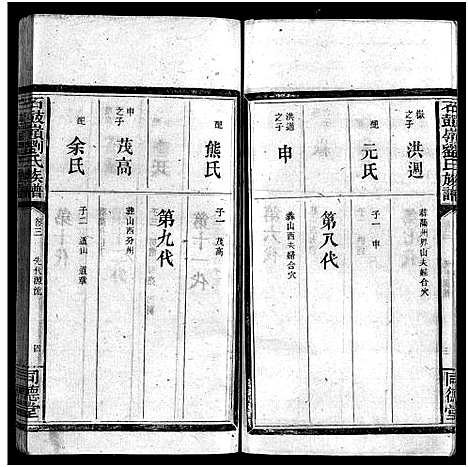 石鼓嶺劉氏族譜
同德堂
嶽之子
洪週
葬陽州界山夫婦合穴
配
元氏
子一 申
第八代
洪週之子
申
葬山西夫婦合穴
配
熊氏
子一 茂高
第九代
申之子
茂高
葬山西汾州
配
余氏
子二 道山 道華
石鼓嶺劉氏族譜
卷三
先代源流
四
同德堂